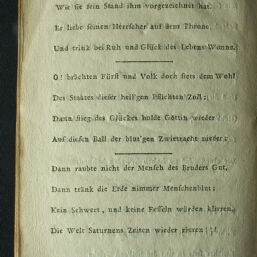 Wie sie sein Stand ihm vorgezeichnet hat.
Er liebe seinen Herrscher auf dem Throne,
Und trink bei Ruh und Glück des Lebens Wonne.
O! brächten Fürst und Volk doch stets dem Wohl
Des Staates dieser heil'gen Pflichten Zoll;
Dann stieg des Glückes holde Göttin wieder
Auf diesen Ball der blut'gen Zwietracht nieder;
Dann raubte nicht der Mensch des Bruders Gut,
Dann tränk die Erde nimmer Menschenblut;
Kein Schwert, und keine Fesseln würden klirren,
Die Welt Saturnens Zeiten wieder